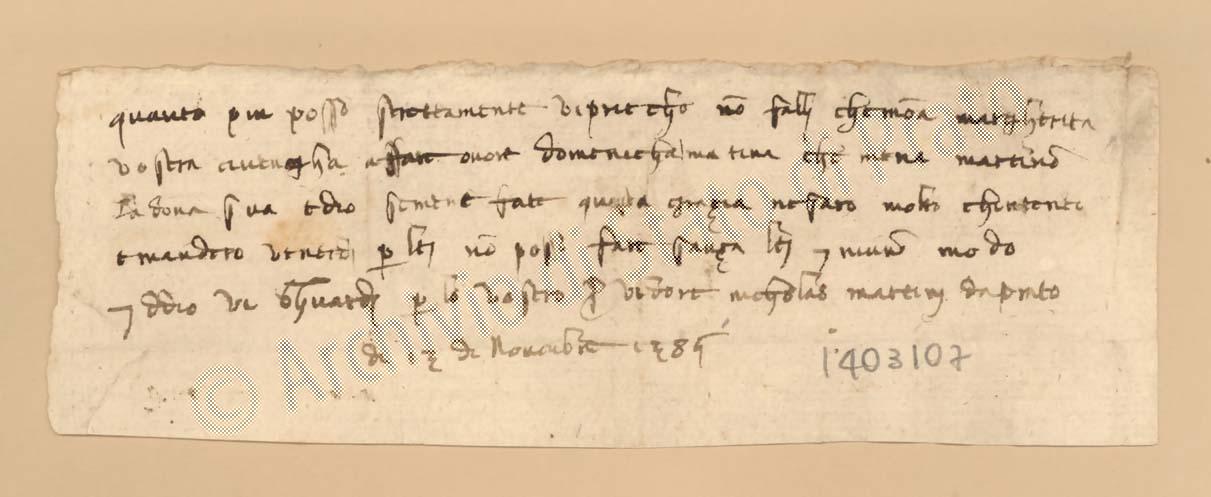 quanto piu posso strettamente vi priecho nō falli che mōa margherita
vostra avengha affare onore domenicha matina che mena martino
la dona sua e dio se mene fate questa grazia ne saro molto chontento
e mandero venerdi per lei nō possi fare sanza lei niuno modo
iddio vi ghuardi per lo vostro servidore nicholaio martini da prato
di 13 di Novenbre
1403107
© Archivio di Stato di Prato